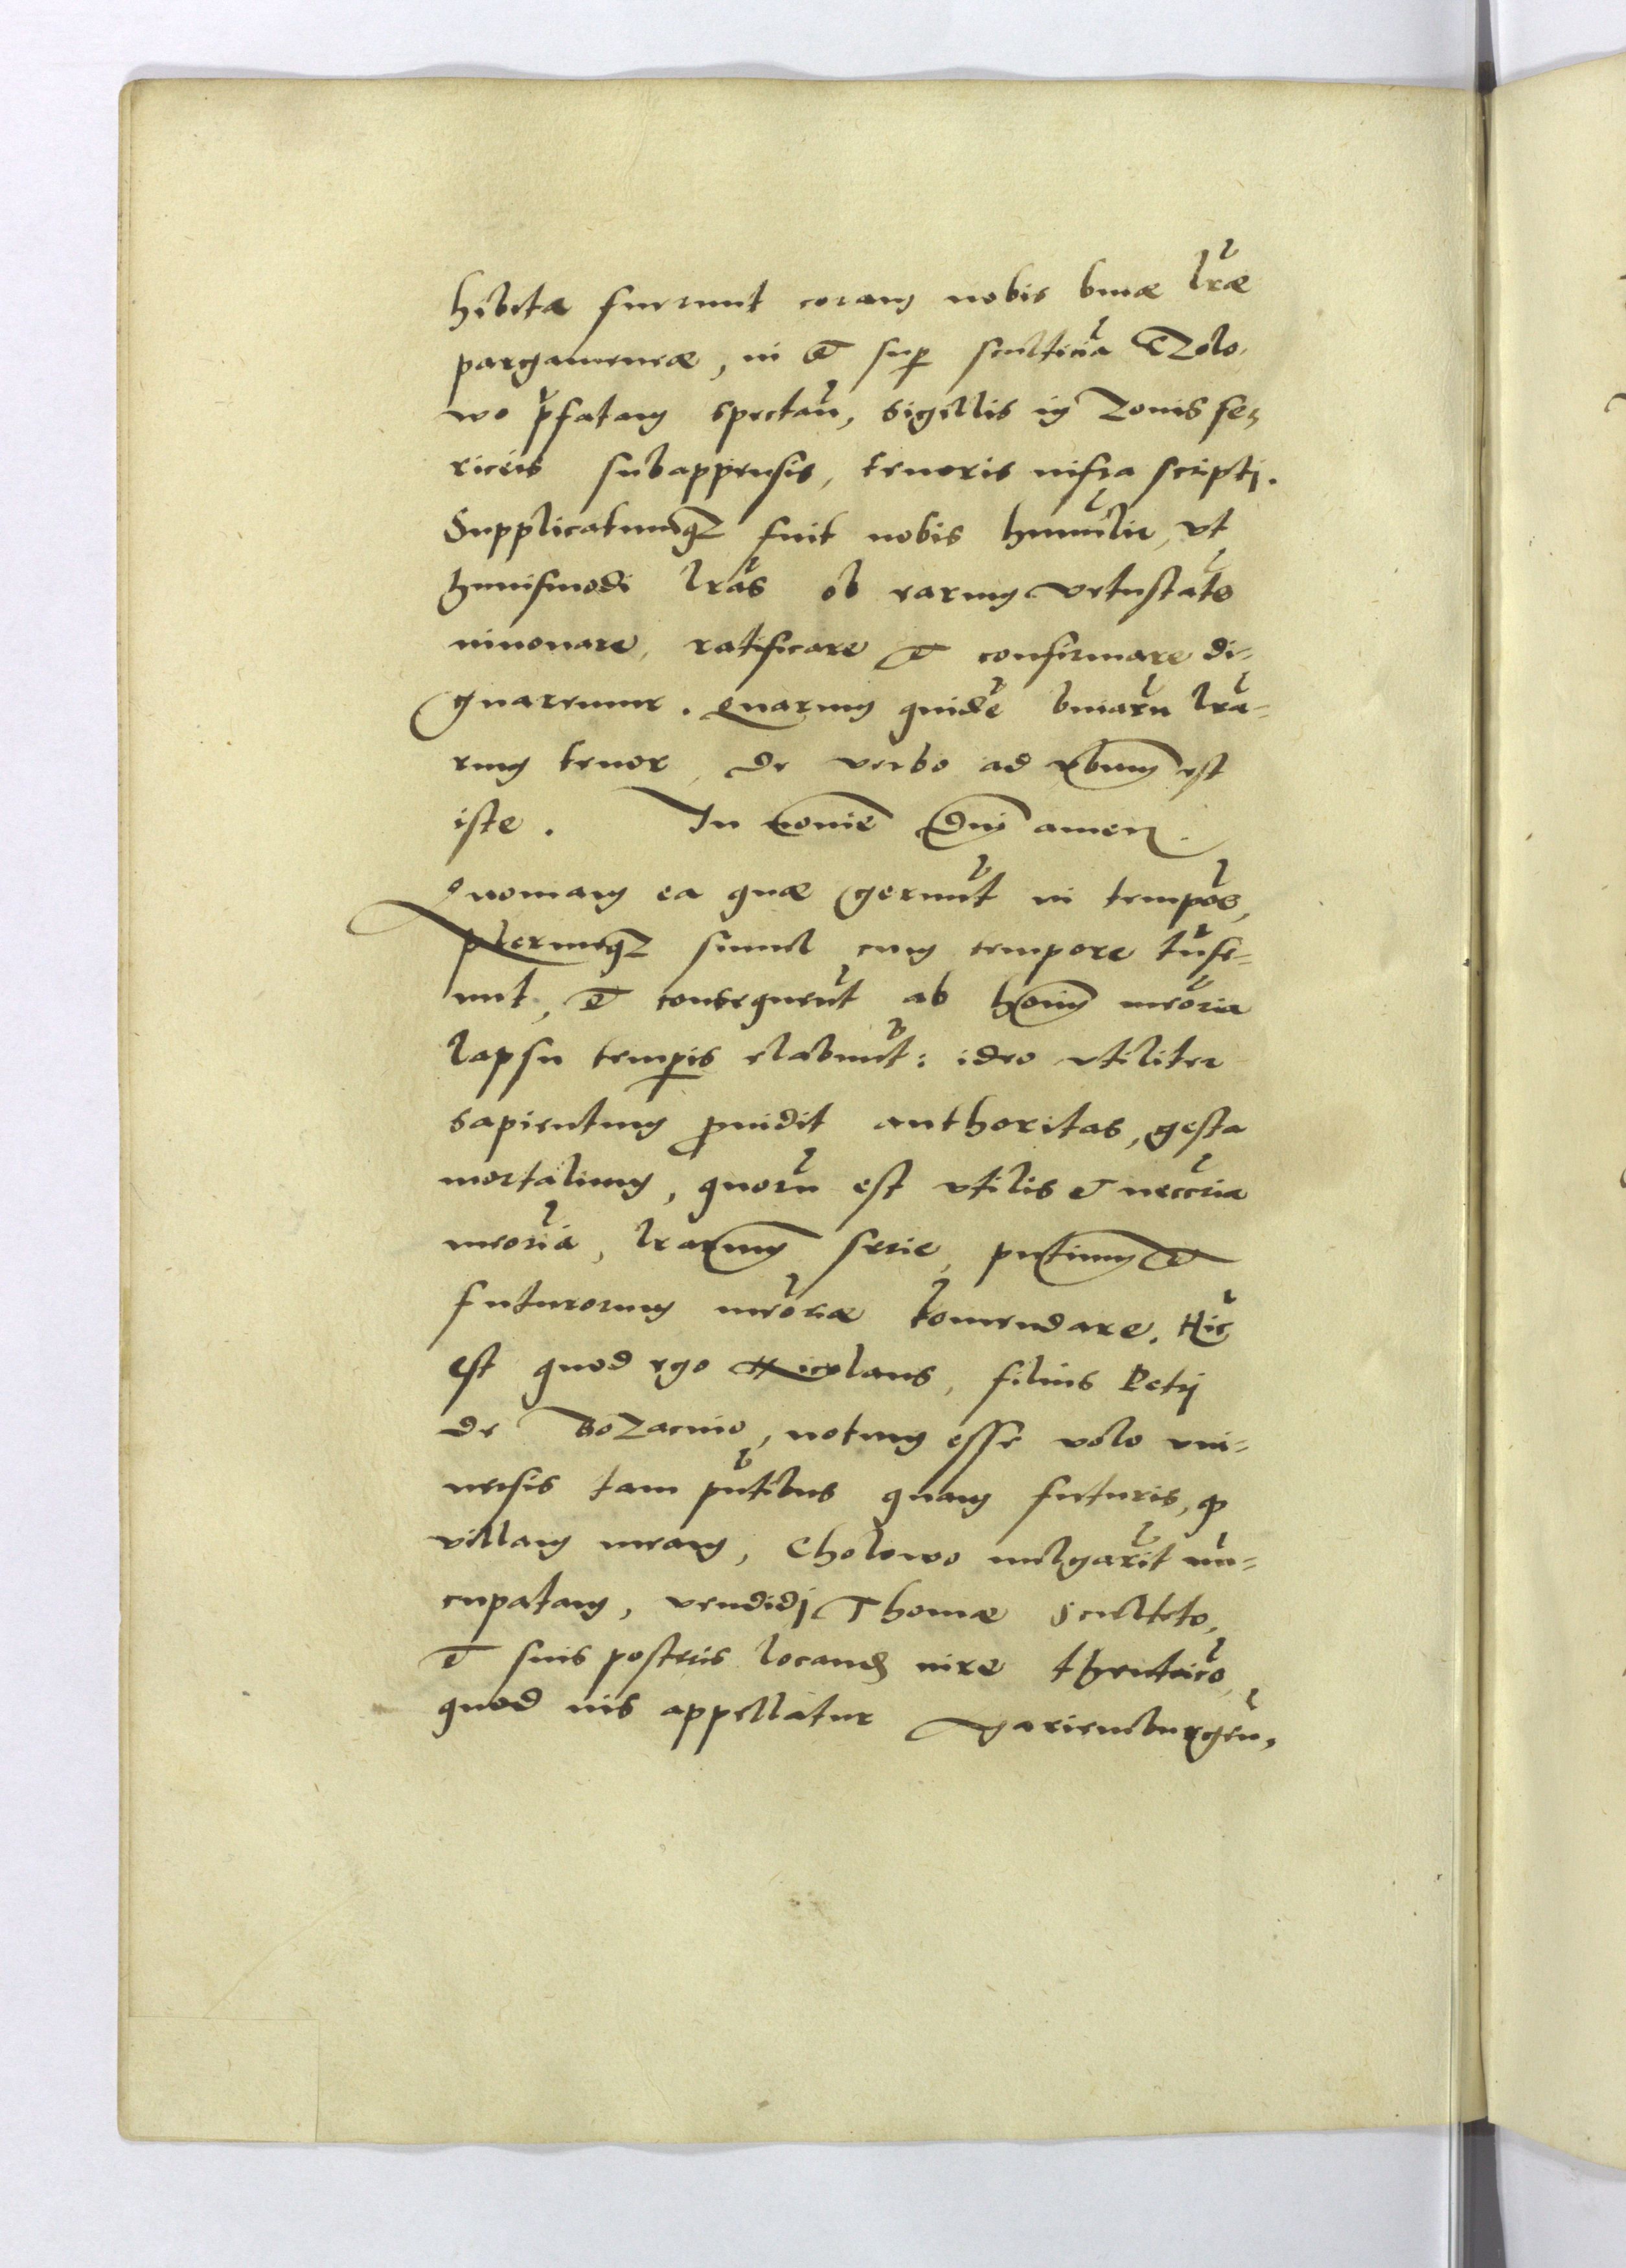 hibitæ fuerunt coram nobis binæ lr̃æ
pargameneæ, in et sup scultetia͂ Czolo-
wo p͂fatam spectan͂, sigillis in zonis se-
riceis subappensis, tenoris infra scripti.
Supplicatumq3 fuit nobis humilit͂, vt
huiusmodi lr̃as ob earum vetustate͂
innouare, ratificare et confirmare di-
gnaremur. Quarum quide͂ binaru͂ lr̃a-
rum tenor, de verbo ad vbum est
iste. In noni͂e Dni͂ amen.
Quoniam ea quæ gerunt͂ in tempor͂e,
plerumq3 simul cum tempore tn͂se-
unt, et consequent͂ ab homi͂m memo͂ria
lapsu temp̱is elabunt͂: ideo vtiliter
sapientum ꝓuidit authoritas, gesta
mortalium, quoru͂ est vtilis et necc͂ria
meo͂ria, lr̃arum serie, pn͂tium et
futurorum memo͂riæ co͂mendare. Hic͂
est quod ego Nicolaus, filius Petri
de Bozacino, notum esse volo vni-
uersis tam pn͂tibus quam futuris, ꝙ
villam meam, Cholowo uulgarit͂ nu͂-
cupatam, vendidi Thomæ Sculteto,
et suis posteris locand͂ iure theutuico͂,
quod ius appellatur Mariemburgen͂,